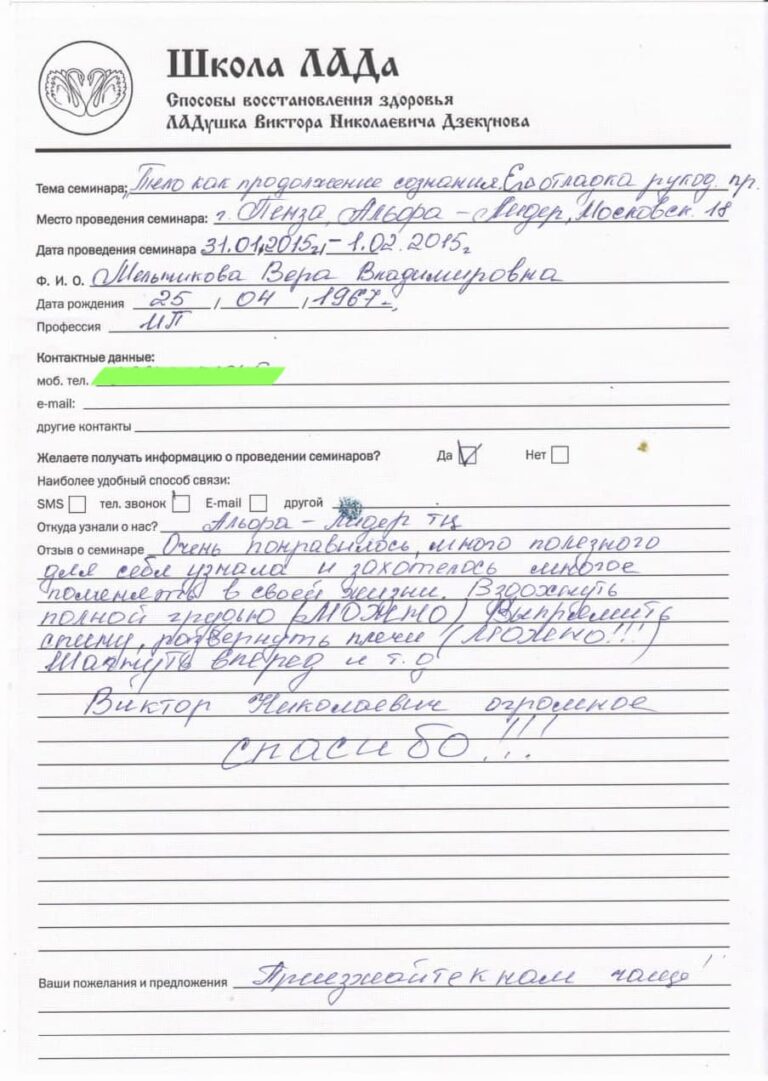 Школа ЛАДа
Способы восстановления здоровья
ЛАДушка Виктора Николаевича Дзекунова
Тема семинара: „Тело как продолжение сознания. Его отладка рукод. пр.
Место проведения семинара: г. Пенза, Альфа – Лидер, Московск. 18
Дата проведения семинара 31.01.2015г. – 1.02.2015г
Ф. И. О. Мельникова Вера Владимировна
Дата рождения 25 , 04 , 1967г.,
Профессия ИП
Контактные данные:
моб. тел.
e-mail:
другие контакты
Желаете получать информацию о проведении семинаров? Да Нет
Наиболее удобный способ связи:
SMS тел. звонок E-mail другой
Откуда узнали о нас? Альфа – Лидер тц
Отзыв о семинаре Очень понравилось, много полезного
для себя узнала и захотелось многое
поменять в своей жизни. Вздохнуть
полной грудью (МОЖНО) Выпрямить
спину, развернуть плечи (МОЖНО!!!)
Шагнуть вперед и т.д
Виктор Николаевич огромное
спасибо!!!
Ваши пожелания и предложения Приезжайте к нам чаще!